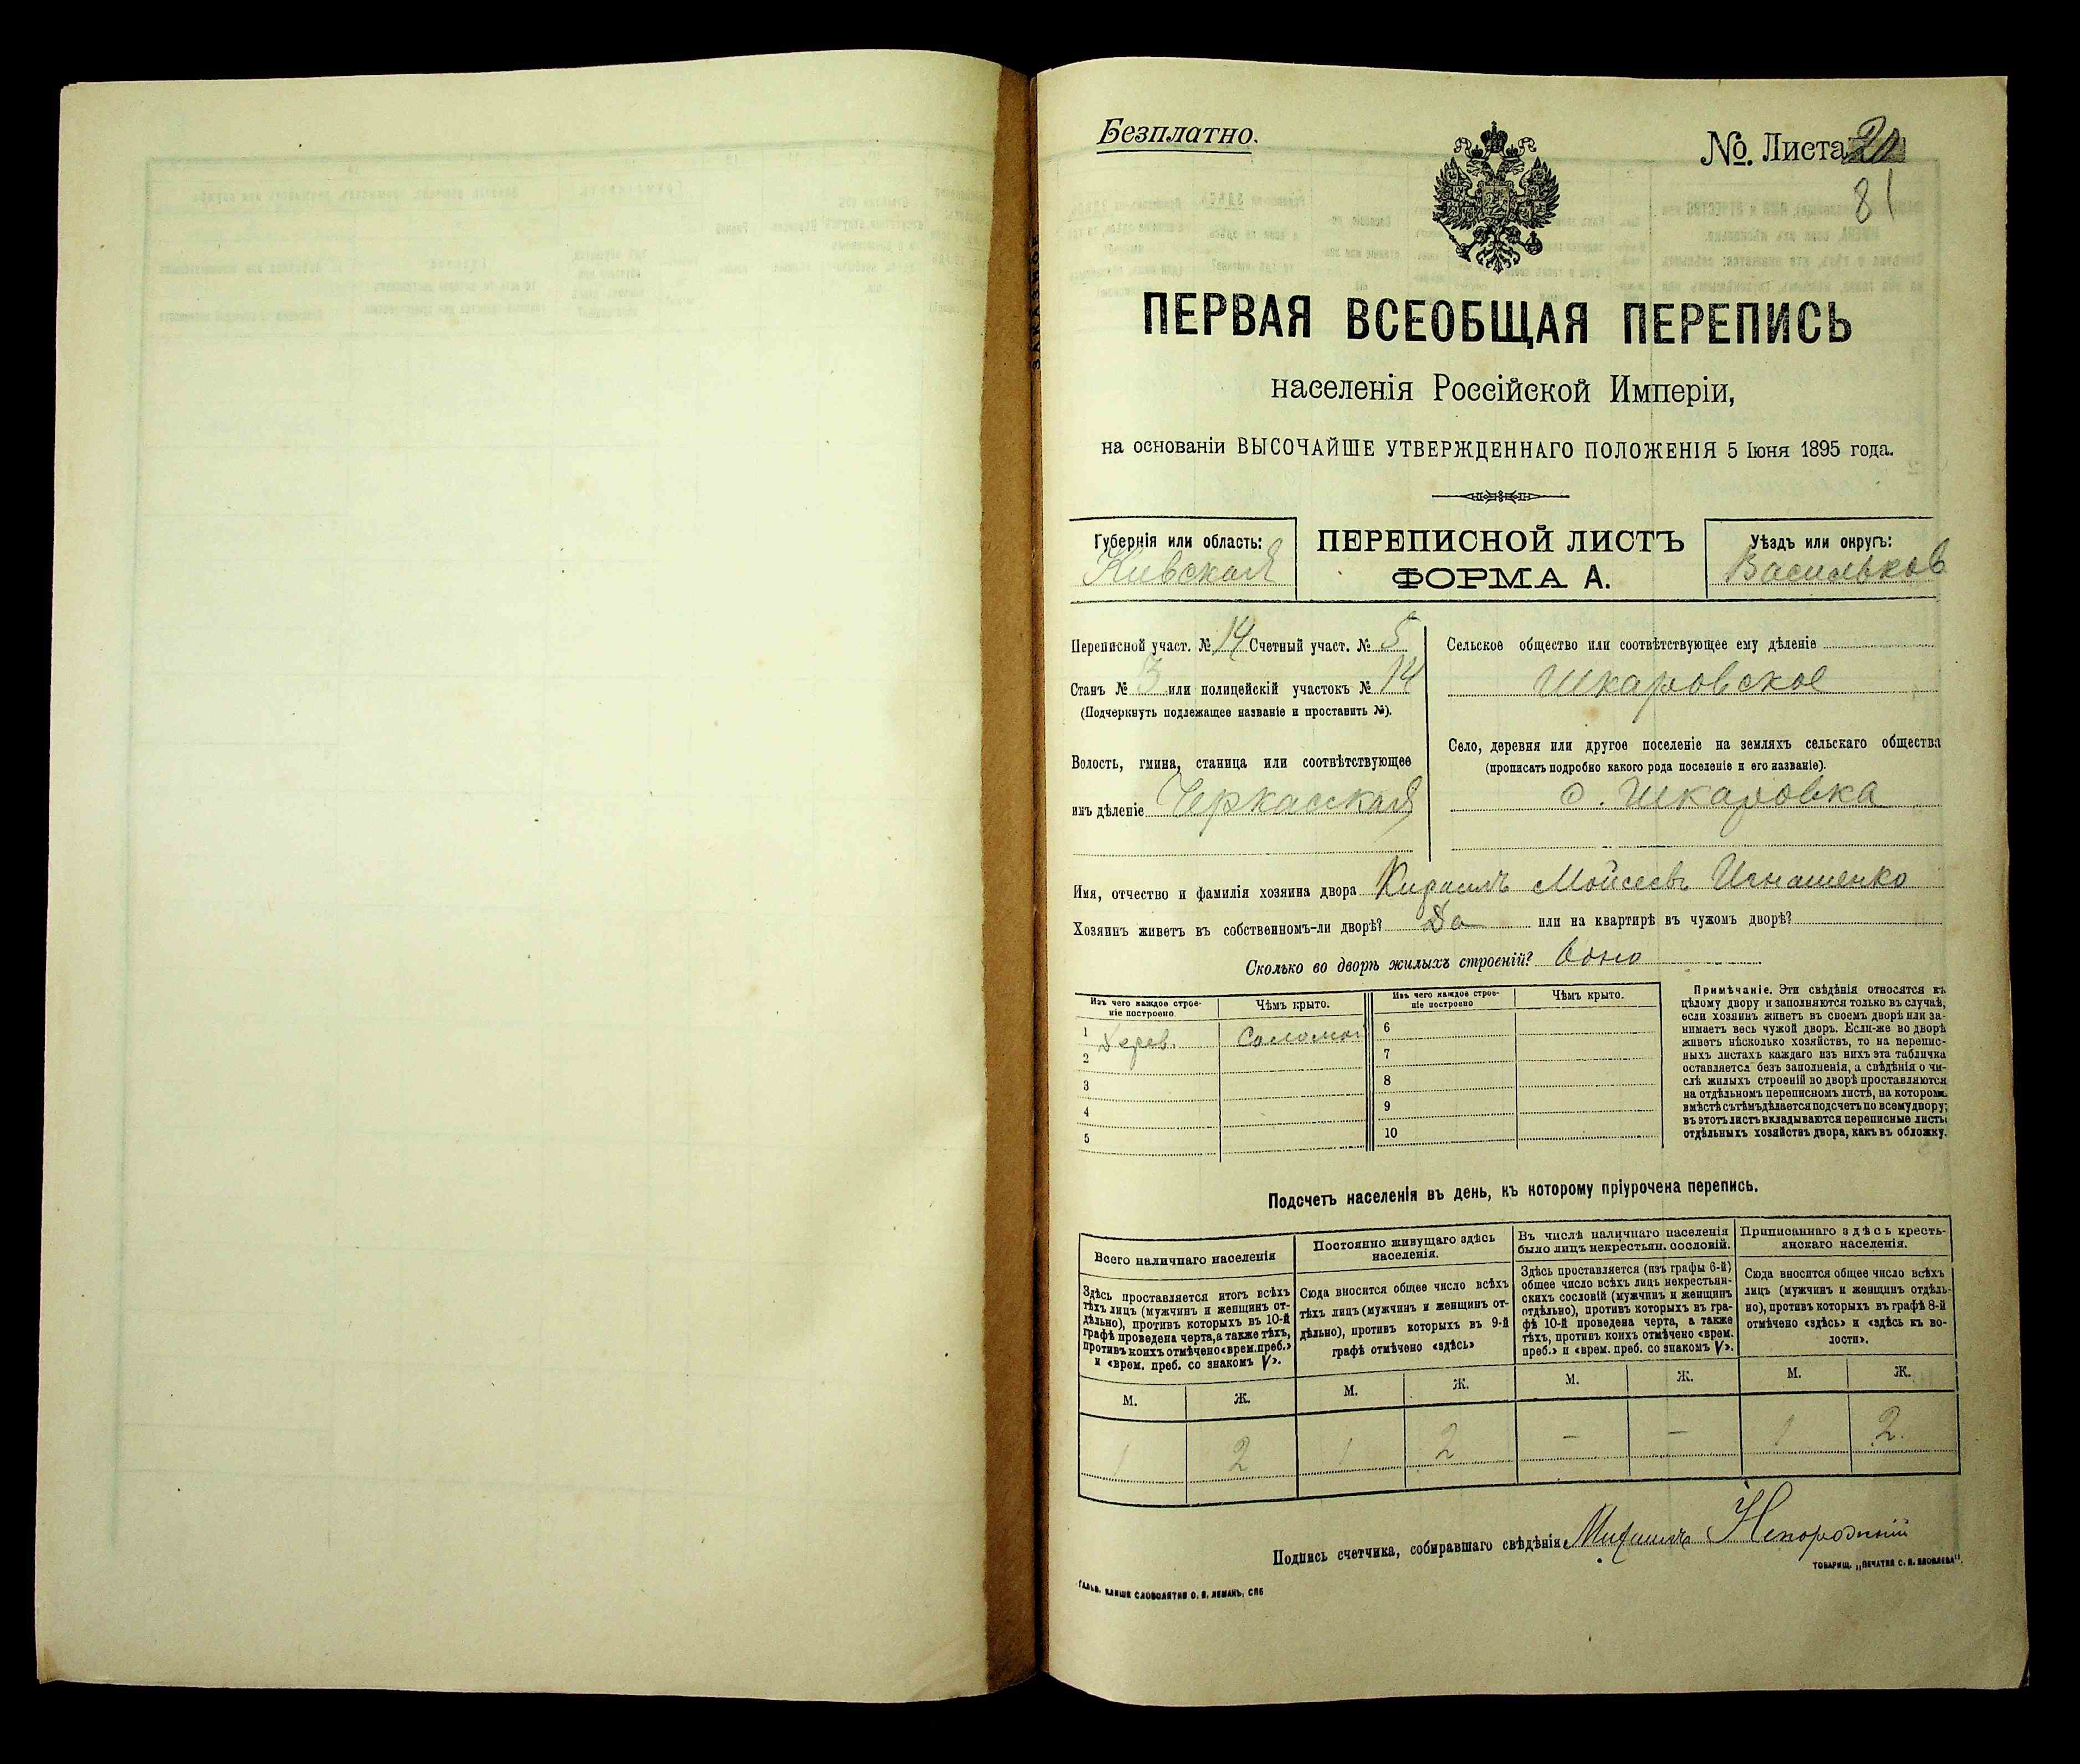 Безплатно.
№. Листа 20
81
ПЕРВАЯ ВСЕОБЩАЯ ПЕРЕПИСЬ
населенія Россійской Имперіи,
на основаніи ВЫСОЧАЙШЕ УТВЕРЖДЕННАГО ПОЛОЖЕНІЯ 5 Іюня 1895 года.
Губернія или область:
Киевская
ПЕРЕПИСНОЙ ЛИСТЪ
ФОРМА А.
Уѣздъ или округъ:
Васильков
Переписной участ. № 14 Счетный участ. № 5
Станъ № 3 или полицейскій участокъ № 14
(Подчеркнуть подлежащее названіе и проставить №).
Волость, гмина, станица или соотвѣтствующее
имъ дѣленіе Черкасская
Сельское общество или соотвѣтствующее ему дѣленіе
Шкаровское
Село, деревня или другое поселеніе на земляхъ сельскаго общества
(прописать подробно какого рода поселеніе и его названіе).
с. Шкаровка
Имя, отчество и фамилія хозяина двора Кирилъ Мойсеевъ Игнашенко
Хозяинъ живетъ въ собственномъ-ли дворѣ? Да или на квартирѣ въ чужомъ дворѣ?
Сколько во дворѣ жилыхъ строеній? Одно
Изъ чего каждое строе-
ніе построено
Чѣмъ крыто.
Изъ чего каждое строе-
ніе построено
Чѣмъ крыто.
1 Дерев. Соломой
2
3
4
5
6
7
8
9
10
Примѣчаніе. Эти свѣдѣнія относятся къ
цѣлому двору и заполняются только въ случаѣ,
если хозяинъ живетъ въ своемъ дворѣ или за-
нимаетъ весь чужой дворъ. Если-же во дворѣ
живетъ нѣсколько хозяйствъ, то на перепис-
ныхъ листахъ каждаго изъ нихъ эта табличка
оставляется безъ заполненія, а свѣдѣнія о чи-
слѣ жилыхъ строеній во дворѣ проставляются
на отдѣльномъ переписномъ листѣ, на которомъ
вмѣстѣ съ тѣмъ дѣлается подсчетъ по всему двору;
въ этотъ листъ вкладываются переписные листы
отдѣльныхъ хозяйствъ двора, какъ въ обложку.
Подсчетъ населенія въ день, къ которому пріурочена перепись.
Всего наличнаго населенія
Здѣсь проставляется итогъ всѣхъ
тѣхъ лицъ (мужчинъ и женщинъ от-
дѣльно), противъ которыхъ въ 10-й
графѣ проведена черта, а также тѣхъ,
противъ коихъ отмѣчено «врем. преб.»
и «врем. преб. со знакомъ V».
Постоянно живущаго здѣсь
населенія.
Сюда вносится общее число всѣхъ
тѣхъ лицъ (мужчинъ и женщинъ от-
дѣльно), противъ которыхъ въ 9-й
графѣ отмѣчено «здѣсь»
Въ числѣ наличнаго населенія
было лицъ некрестьян. сословій.
Здѣсь проставляется (изъ графы 6-й)
общее число всѣхъ лицъ некрестьян-
скихъ сословій (мужчинъ и женщинъ
отдѣльно), противъ которыхъ въ гра-
фѣ 10-й проведена черта, а также
тѣхъ, противъ коихъ отмѣчено «врем.
преб.» и «врем. преб. со знакомъ V».
Приписаннаго здѣсь кресть-
янскаго населенія.
Сюда вносится общее число всѣхъ
лицъ (мужчинъ и женщинъ отдѣль-
но), противъ которыхъ въ графѣ 8-й
отмѣчено «здѣсь» и «здѣсь къ во-
лости».
М. Ж. М. Ж. М. Ж. М. Ж.
1 2 1 2 – – 1 2.
Подпись счетчика, собиравшаго свѣдѣнія Михаилъ Непорожній
ГАЛЬВ. КЛИШЕ СЛОВОЛИТНИ О. И. ЛЕМАНЪ, СПБ
ТОВАРИЩ. „ПЕЧАТНЯ С. П. ЯКОВЛЕВА".